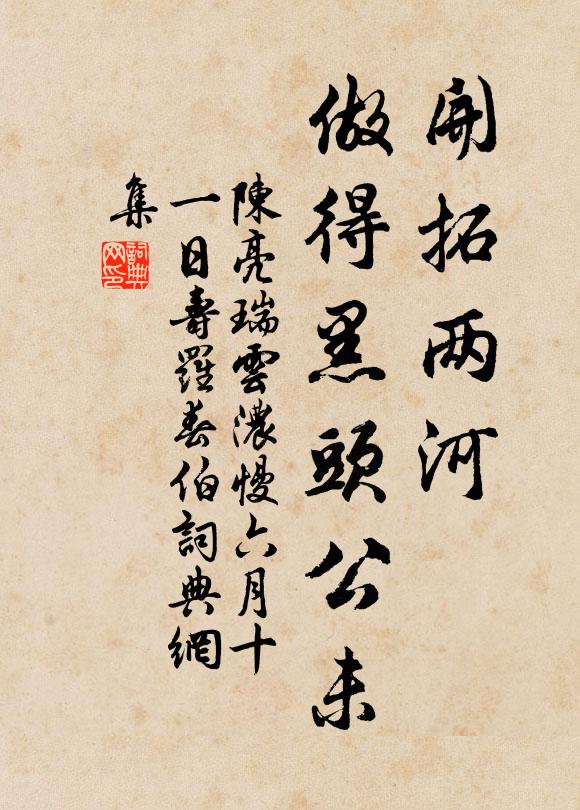 開拓两河
做得黑頭公未
陳亮瑞雲濃慢六月十
一日壽羅春伯詞典網
集
詞典
网印